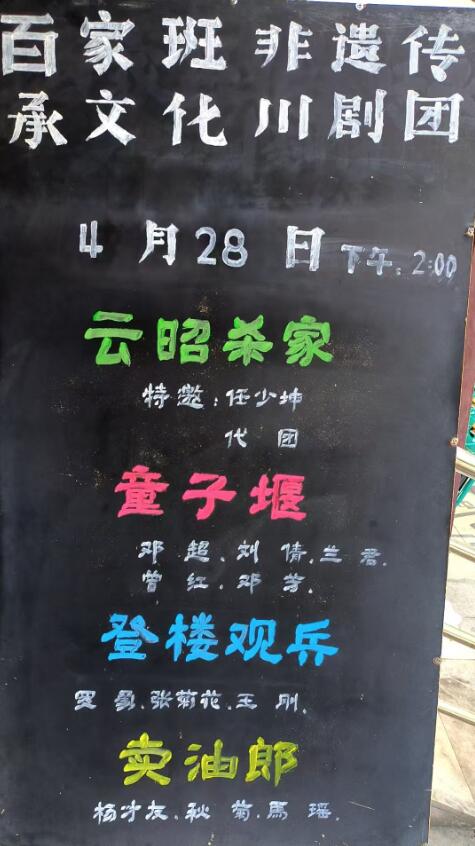 百家班非遗传
承文化川剧团
4月28日下午:2:00
云昭杀家
特邀:任少坤
代团
童子堰
邓超、刘倩、兰君.
曾红、邓芳.
登楼观兵
罗勇、张菊花、王刚.
卖油郎
杨才友、秋菊、馬瑶.